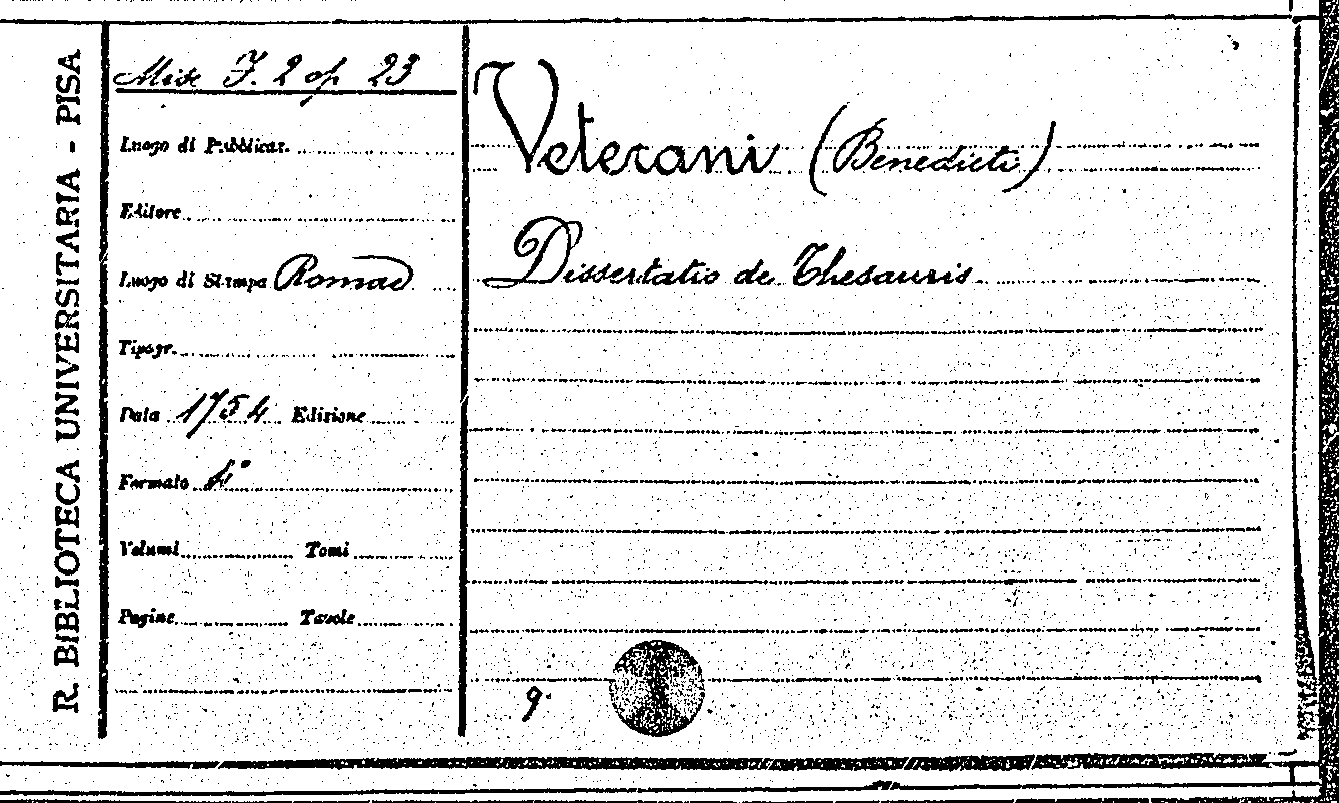 R. BIBLIOTECA UNIVERSITARIA - PISA
Misc F. 2 op 23
Luogo di Pubblicaz.
Editore
Luogo di Stampa Romae
Tipogr.
Data 1754 Edizione
Formato 4°
Volumi Tomi
Pagine Tavole
Veterani (Benedicti)
Dissertatio de Thesauris
9.